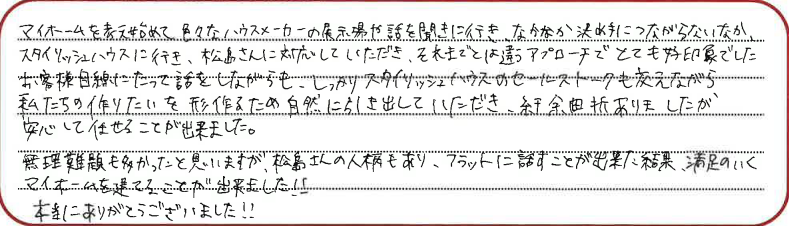 マイホームを考え始めて色々なハウスメーカーの展示場や話を聞きに行き、なかなか決め手につながらないなか、
スタイリッシュハウスに行き、松島さんに対応していただき、それまでとは違うアプローチでとても好印象でした
お客様目線にたって話をしながらも、しっかりスタイリッシュハウスのセールストークも交えながら
私たちの作りたいを形作るため自然に引き出していただき、紆余曲折ありましたが
安心して任せることが出来ました。
無理難題も多かったと思いますが、松島さんの人柄もあり、フラットに話すことが出来た結果、満足のいく
マイホームを建てることが出来ました!!
本当にありがとうございました!!